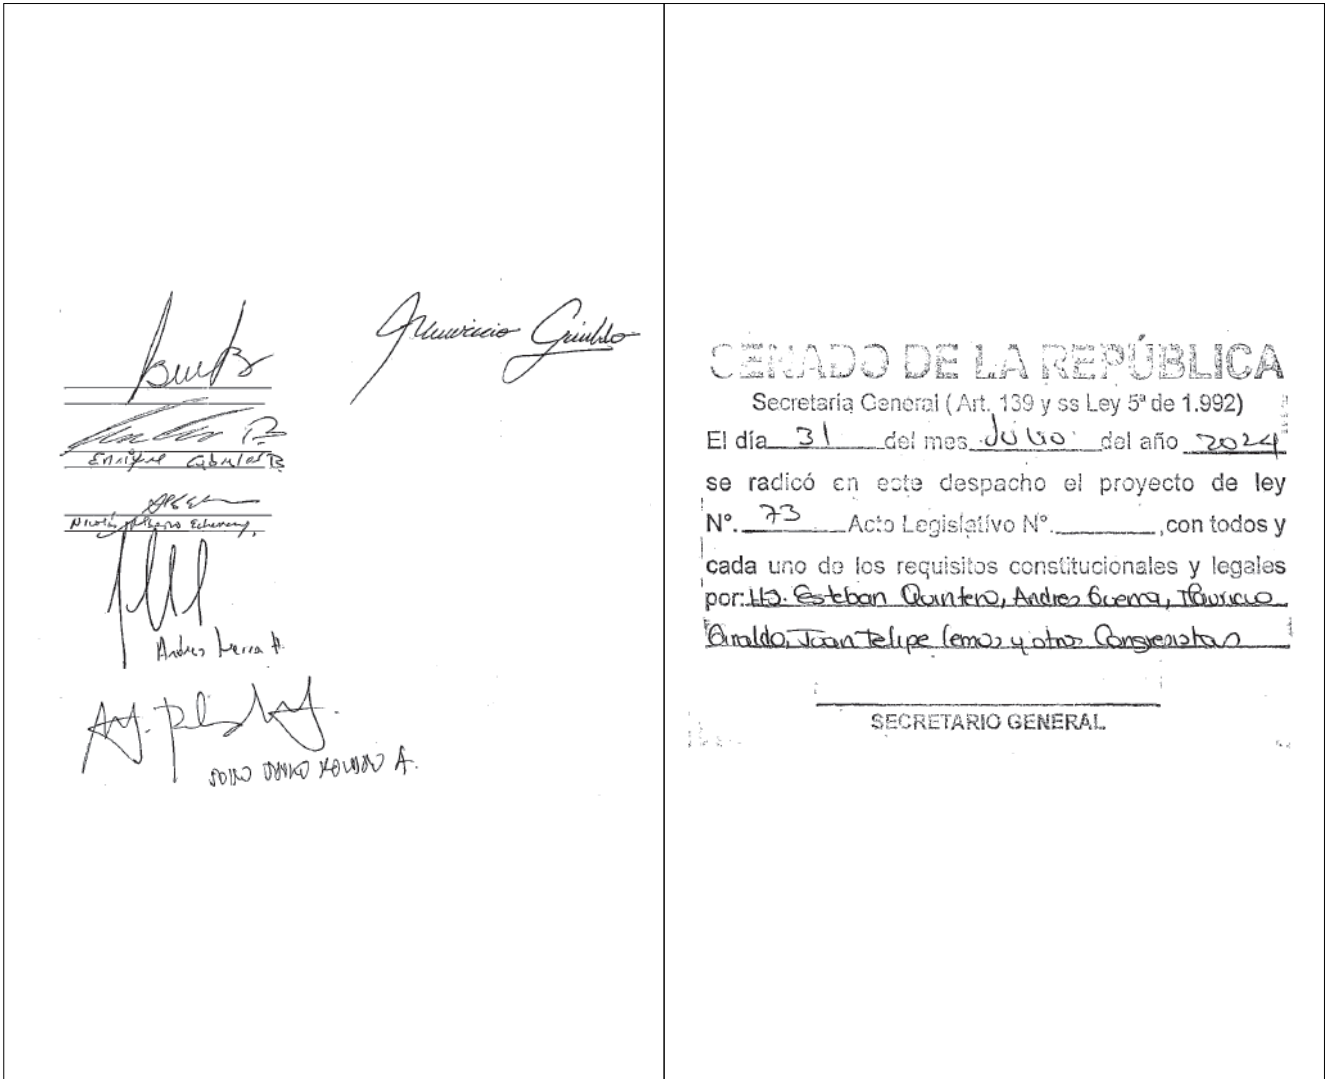 Mauricio Giraldo
Enrique Cabrales B
Nicolás Albeiro Echeverry
Andres Guerra H.
A.
SENADO DE LA REPÚBLICA
Secretaria General ( Art. 139 y ss Ley 5ª de 1.992)
El día 31 del mes Julio del año 2024
se radicó en este despacho el proyecto de ley
Nº. 73 Acto Legislativo Nº. , con todos y
cada uno de los requisitos constitucionales y legales
por: Hs. Esteban Quintero, Andres Guerra, Mauricio
Giraldo, Juan Felipe Lemos y otros Congresistas
SECRETARIO GENERAL